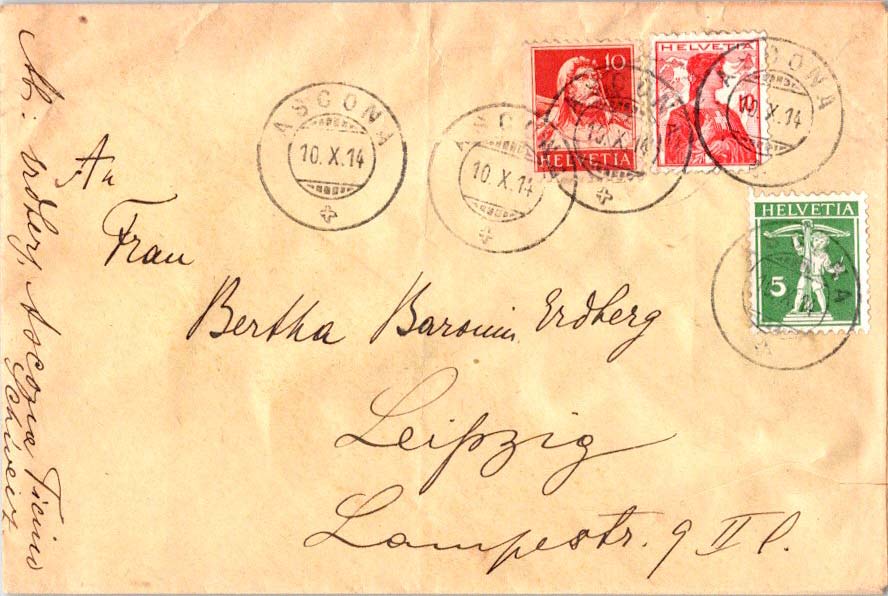 An
Frau
Bertha Baronin Erdberg
Leipzig
Lampestr. 9 II l.
Abs: Erdberg, Ascona Ticino
Schweiz
ASCONA
10.X.14
ASCONA
10.X.14
ASCONA
10.X.14
ASCONA
10.X.14
10
HELVETIA
HELVETIA
HELVETIA
5